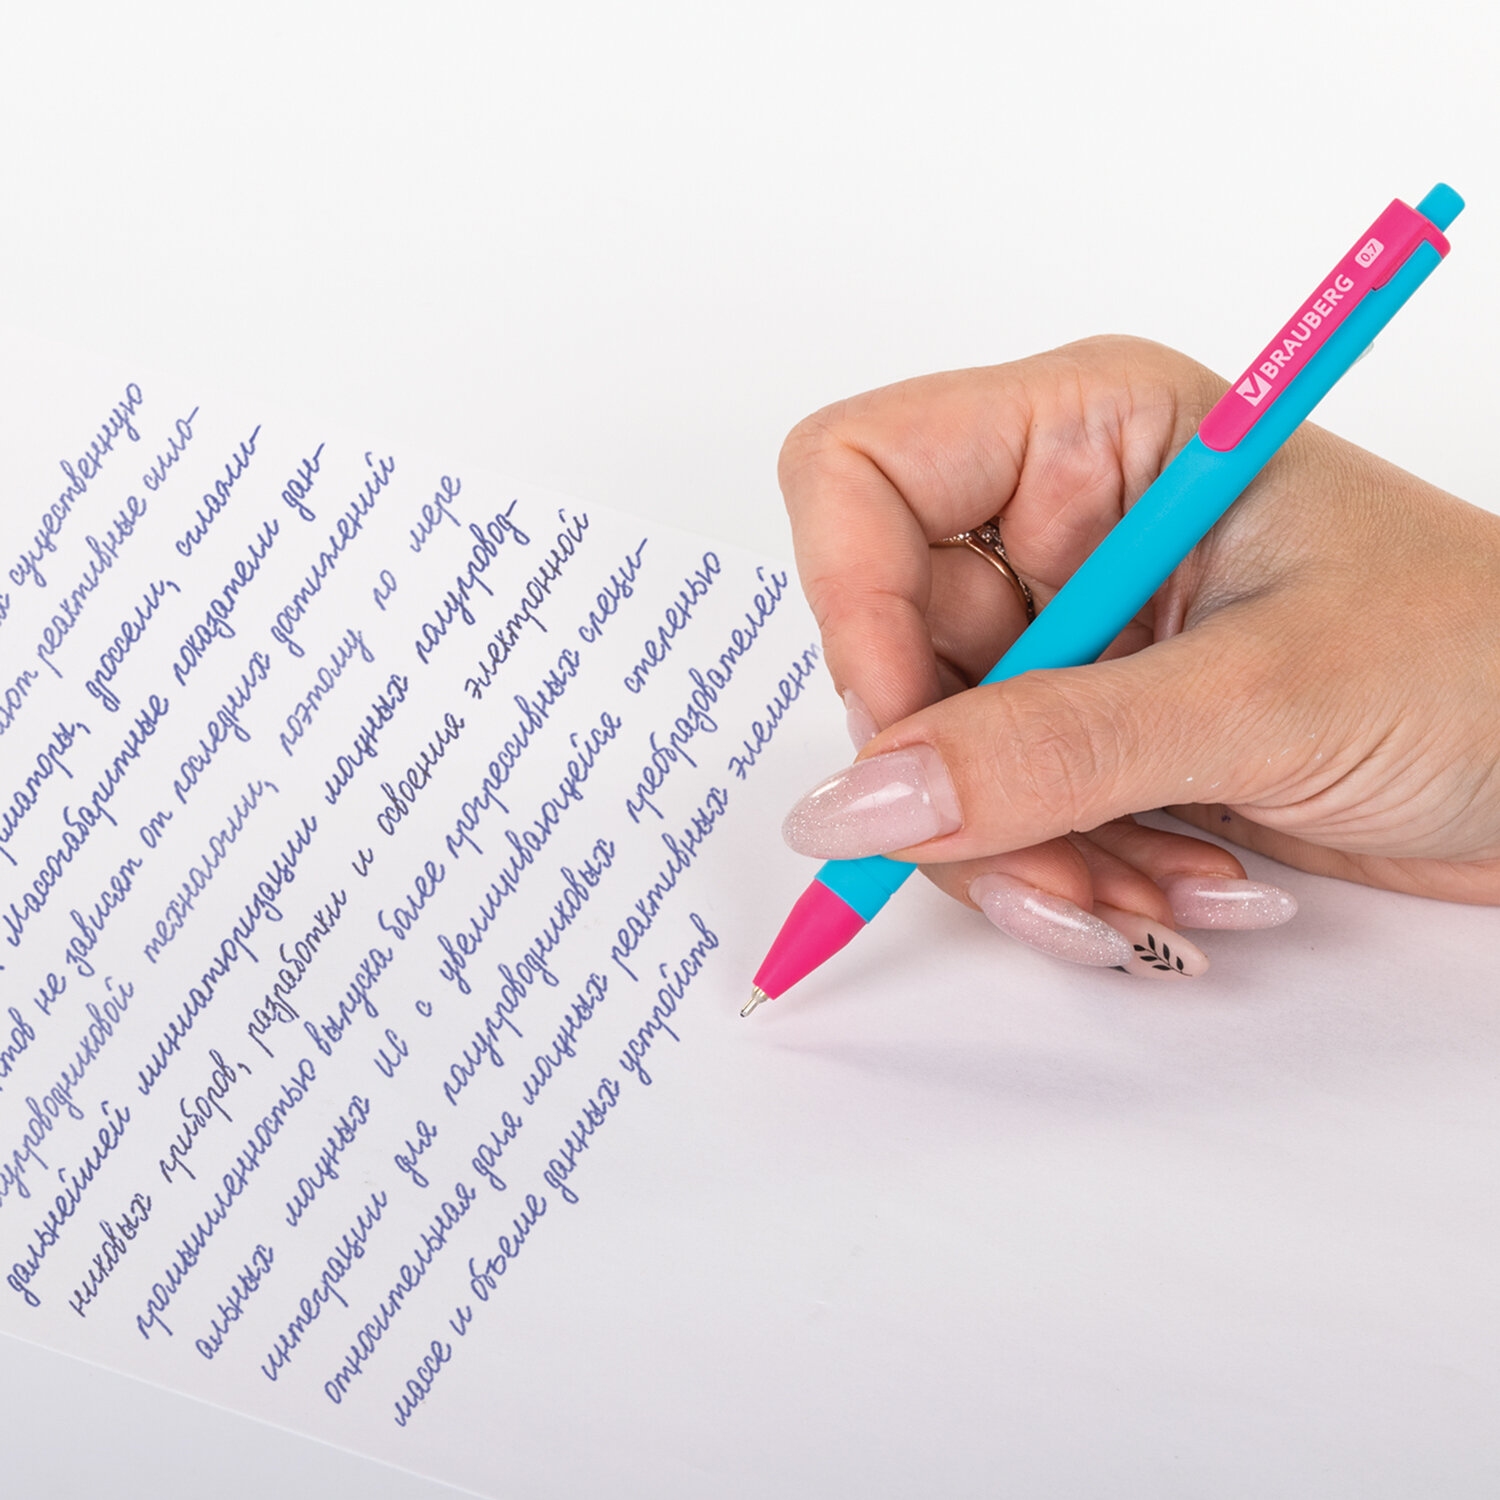 существенную
реактивные сило-
дроссели, силами
Массогабаритные показатели дан-
не зависят от последних достижений
технологии, поэтому по мере
дальнейшей миниатюризации мощных полупровод-
никовых приборов, разработки и освоения электронной
промышленностью выпуска более прогрессивных специ-
альных мощных ИС с увеличивающейся степенью
интеграции для полупроводниковых преобразователей
относительная доля мощных реактивных элемент
массе и объеме данных устройств
BRAUBERG 0.7